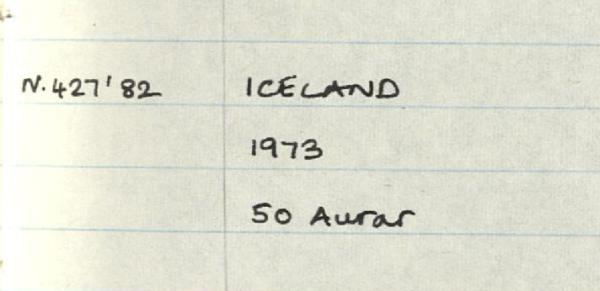 N.427'82 ICELAND
1973
50 Aurar